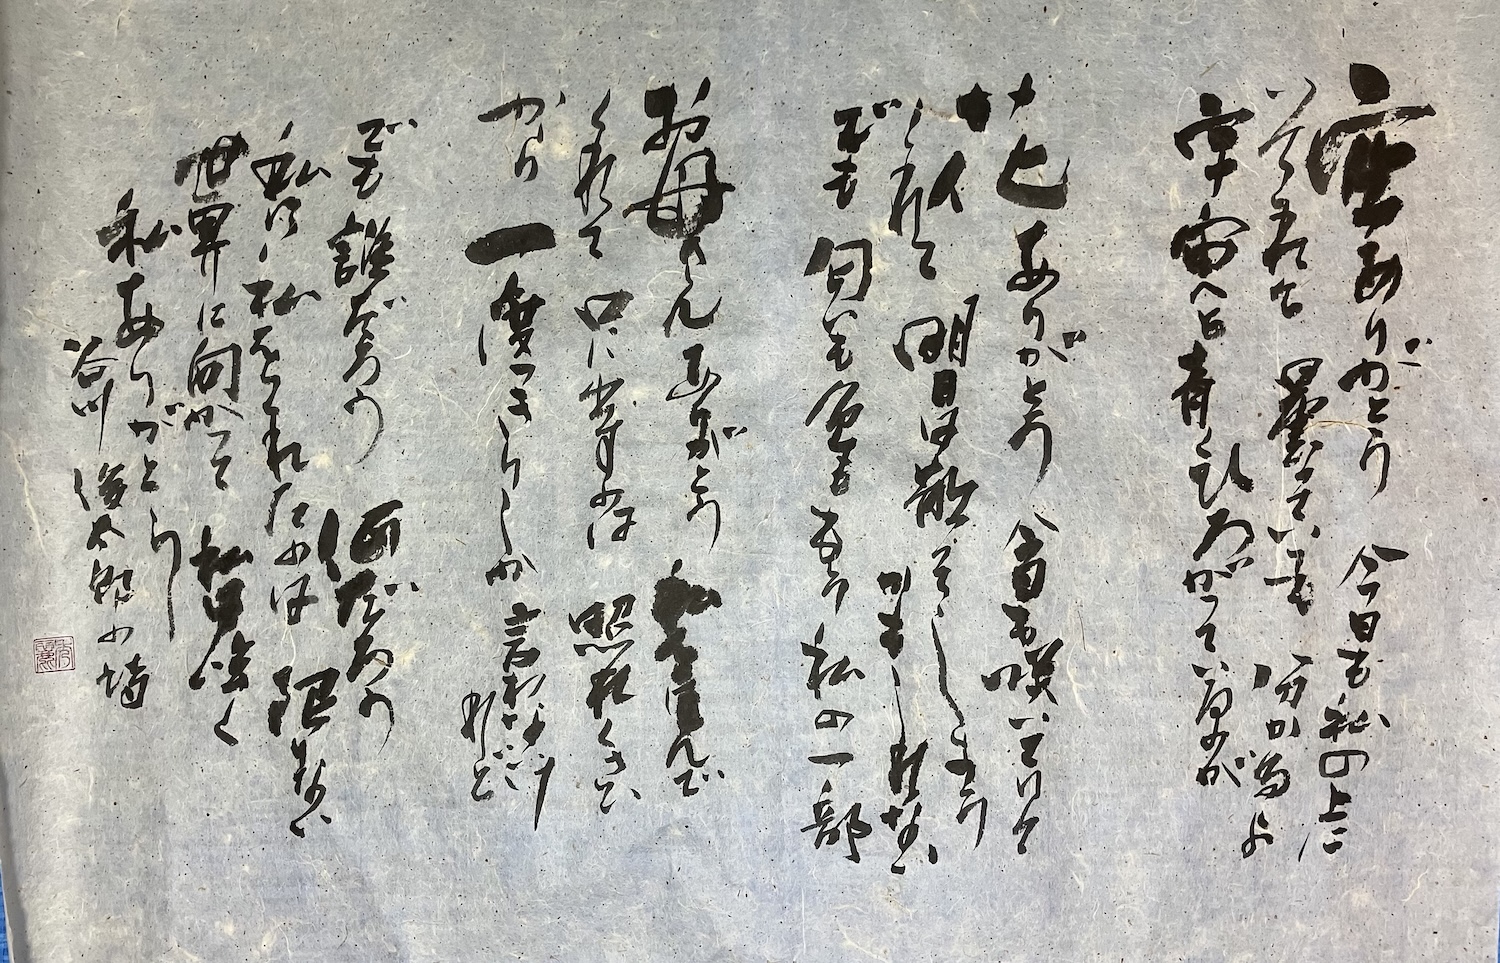 空ありがとう 今日も私の上に
いてくれて 曇っていても 分かるよ
宇宙へと青くひろがっているのが
花ありがとう 今日も咲いていて
くれて 明日は散ってしまう
かもしれない
でも 匂いも色も もう 私の一部
お母さんありがとう 私を生んで
くれて 口に出すのは 照れくさい
から 一度っきりしか 言わないけれど
でも 誰だろう 何だろう
私に 私をくれたのは 限りない
世界に向かって 私は呟く
私ありがとう
谷川 俊太郎の詩